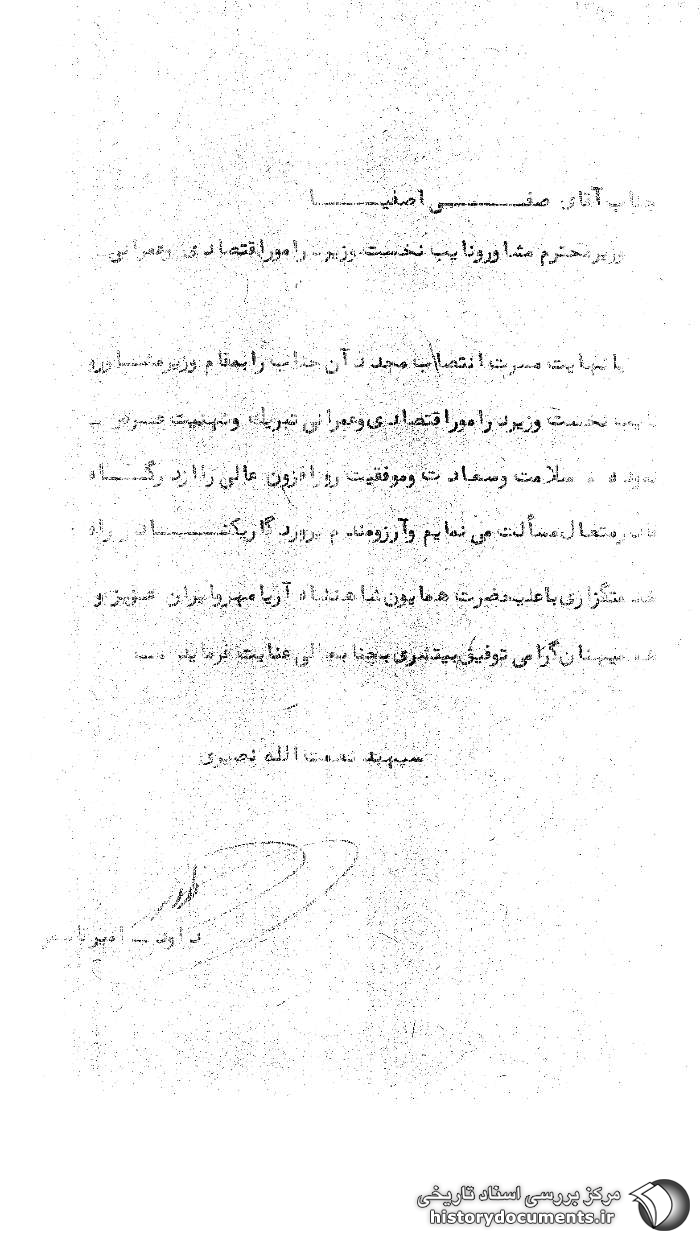 جناب آقای صفـــــــی اصفیـــــا
وزیر محترم مشاور و نایب نخست وزیر در امور اقتصادی و عمرانی
با نهایت مسرت انتصاب مجدد آن جناب را بمقام وزیر مشـــاور و
نایب نخست وزیر در امور اقتصادی و عمرانی تبریک و تهنیت عرض
نموده سلامت و سعادت و موفقیت روز افزون عالی را از درگـــــاه
قادر متعال مسألت می نمایم و آرزومندم پروردگار یکتـــــا در راه
خدمتگزاری باعلیحضرت همایون شاهنشاه آریامهر و ایران عزیز و
هم میهنان گرامی توفیق بیشتری بجنابعالی عنایت فرماید .
سپهبد نعمت الله نصیری
داود ـ امیر
مرکز بررسی اسناد تاریخی
historydocuments.ir